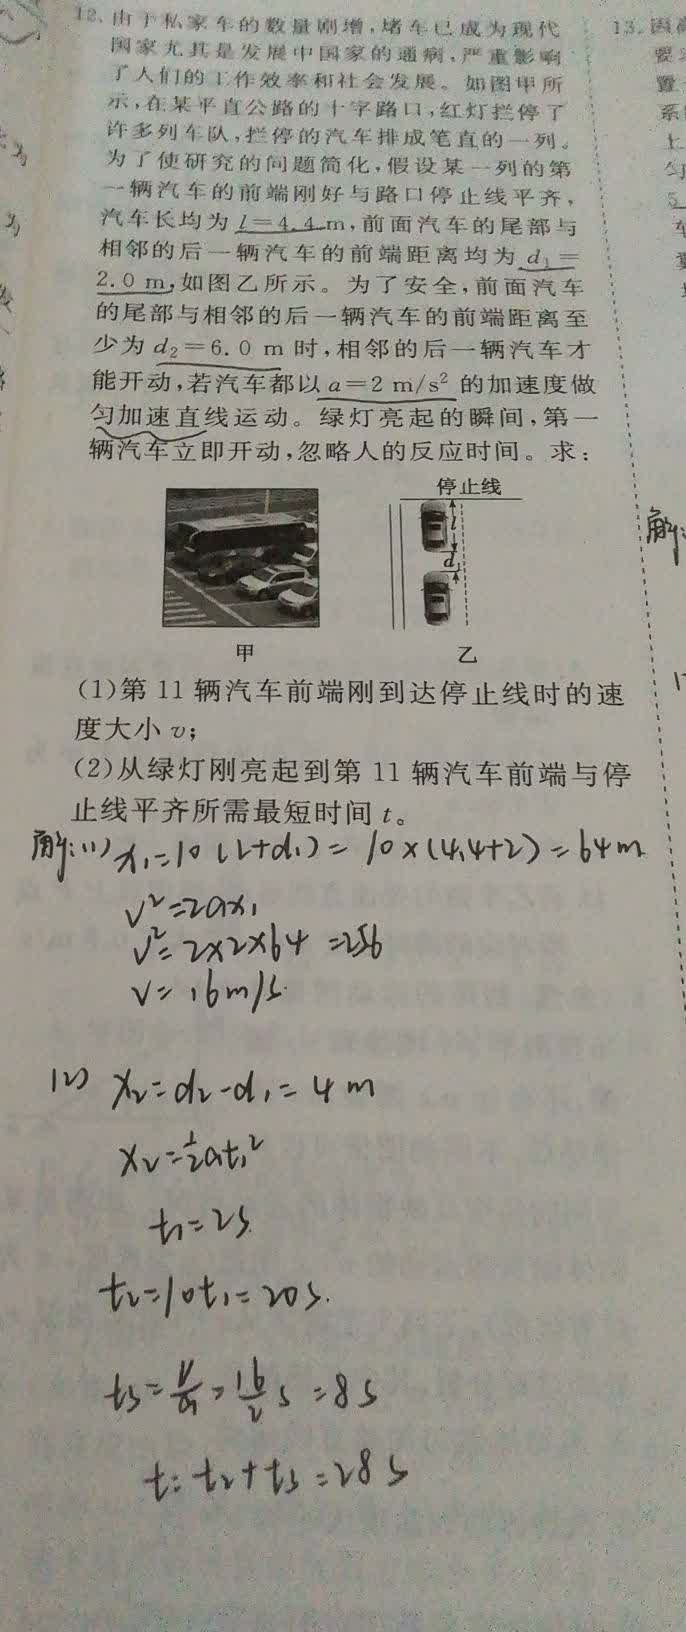 12. 由于私家车的数量剧增,堵车已成为现代
国家尤其是发展中国家的通病,严重影响
了人们的工作效率和社会发展。如图甲所
示,在某平直公路的十字路口,红灯拦停了
许多列车队,拦停的汽车排成笔直的一列。
为了使研究的问题简化,假设某一列的第
一辆汽车的前端刚好与路口停止线平齐,
汽车长均为 l=4.4 m,前面汽车的尾部与
相邻的后一辆汽车的前端距离均为 d₁=
2.0 m,如图乙所示。为了安全,前面汽车
的尾部与相邻的后一辆汽车的前端距离至
少为 d₂=6.0 m 时,相邻的后一辆汽车才
能开动,若汽车都以 a=2 m/s² 的加速度做
匀加速直线运动。绿灯亮起的瞬间,第一
辆汽车立即开动,忽略人的反应时间。求:
停止线
l
d₁
甲
乙
(1)第 11 辆汽车前端刚到达停止线时的速
度大小 v;
(2)从绿灯刚亮起到第 11 辆汽车前端与停
止线平齐所需最短时间 t。
解:(1) x₁=10(l+d₁)=10×(4.4+2)=64m
v²=2ax₁
v²=2×2×64=256
v=16m/s
(2) x₂=d₂-d₁=4m
x₂=½at₁²
t₁=2s
t₂=10t₁=20s.
t₃=v/a=16/2 s=8s
t=t₂+t₃=28s
13.
解: